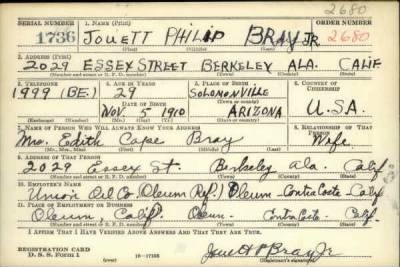 2680
SERIAL NUMBER 1. NAME (Print) ORDER NUMBER
1736 JOUETT PHILIP BRAY JR 2680
(First) (Middle) (Last)
2. ADDRESS (Print)
2029 ESSEX STREET BERKELEY ALA. CALIF
(Number and street or R. F. D. number) (Town) (County) (State)
3. TELEPHONE 4. AGE IN YEARS 5. PLACE OF BIRTH 6. COUNTRY OF CITIZENSHIP
1999 (BE.) 29 SOLOMONVILLE
(Town or county)
DATE OF BIRTH
NOV. 5 1910 ARIZONA U.S.A.
(Exchange) (Number) (Mo.) (Day) (Yr.) (State or country)
7. NAME OF PERSON WHO WILL ALWAYS KNOW YOUR ADDRESS 8. RELATIONSHIP OF THAT PERSON
Mrs. Edith Cape Bray Wife
(Mr., Mrs., Miss) (First) (Middle) (Last)
9. ADDRESS OF THAT PERSON
2029 Essex St. Berkeley Ala. Calif.
(Number and street or R. F. D. number) (Town) (County) (State)
10. EMPLOYER'S NAME
Union Oil Co. (Oleum Ref.) Oleum - Contra Costa Calif
11. PLACE OF EMPLOYMENT OR BUSINESS
Oleum, Calif. Oleum - Contra Costa - Calif.
(Number and street or R. F. D. number) (Town) (County) (State)
I AFFIRM THAT I HAVE VERIFIED ABOVE ANSWERS AND THAT THEY ARE TRUE.
REGISTRATION CARD
D. S. S. Form 1 16-17105 Jouett P Bray Jr
(Registrant's signature)